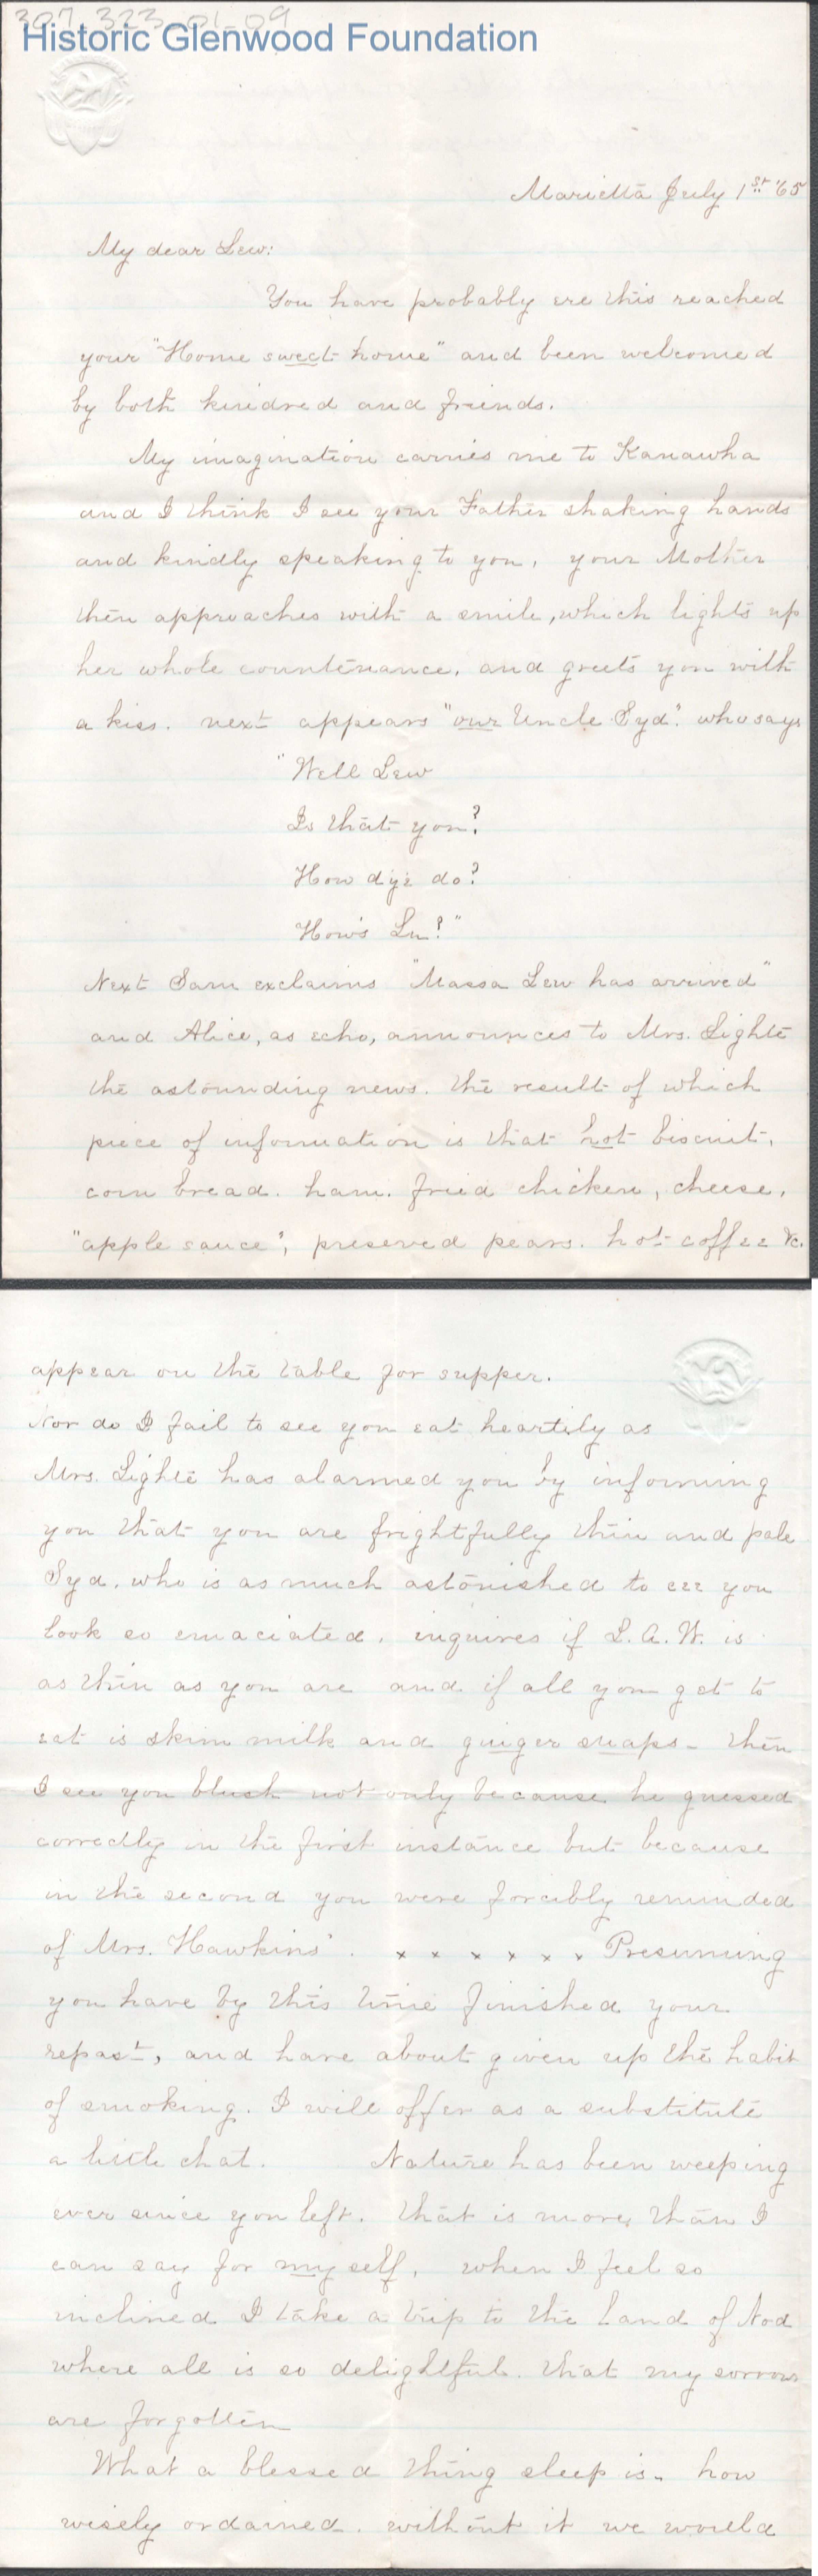 307_323_01_09
Historic Glenwood Foundation
Marietta July 1st '65
My dear Lew:
You have probably ere this reached
your "Home sweet home" and been welcomed
by both kindred and friends.
My imagination carries me to Kanawha
and I think I see your Father shaking hands
and kindly speaking to you, your Mother
then approaches with a smile, which lights up
her whole countenance, and greets you with
a kiss. next appears "our Uncle Syd". who says
"Well Lew
Is that you?
How d'ye do?
How's Lu?"
Next Sam exclaims "Massa Lew has arrived"
and Alice, as echo, announces to Mrs. Lighte
the astounding news. the result of which
piece of information is that hot biscuit,
corn bread. ham. fried chicken, cheese,
"apple sauce", preserved pears. hot coffee &c.
appear on the table for supper.
Nor do I fail to see you eat heartily as
Mrs. Lighte has alarmed you by informing
you that you are frightfully thin and pale
Syd. who is as much astonished to see you
look so emaciated, inquires if L.A.W. is
as thin as you are and if all you get to
eat is skim milk and ginger snaps - then
I see you blush not only because he guessed
correctly in the first instance but because
in the second you were forcibly reminded
of Mrs. Hawkins'. x x x x x x x Presuming
you have by this time finished your
repast, and have about given up the habit
of smoking. I will offer as a substitute
a little chat. Nature has been weeping
ever since you left. that is more than I
can say for myself, when I feel so
inclined I take a trip to the Land of Nod
where all is so delightful. that my sorrows
are forgotten
What a blessed thing sleep is. how
wisely ordained. without it we would